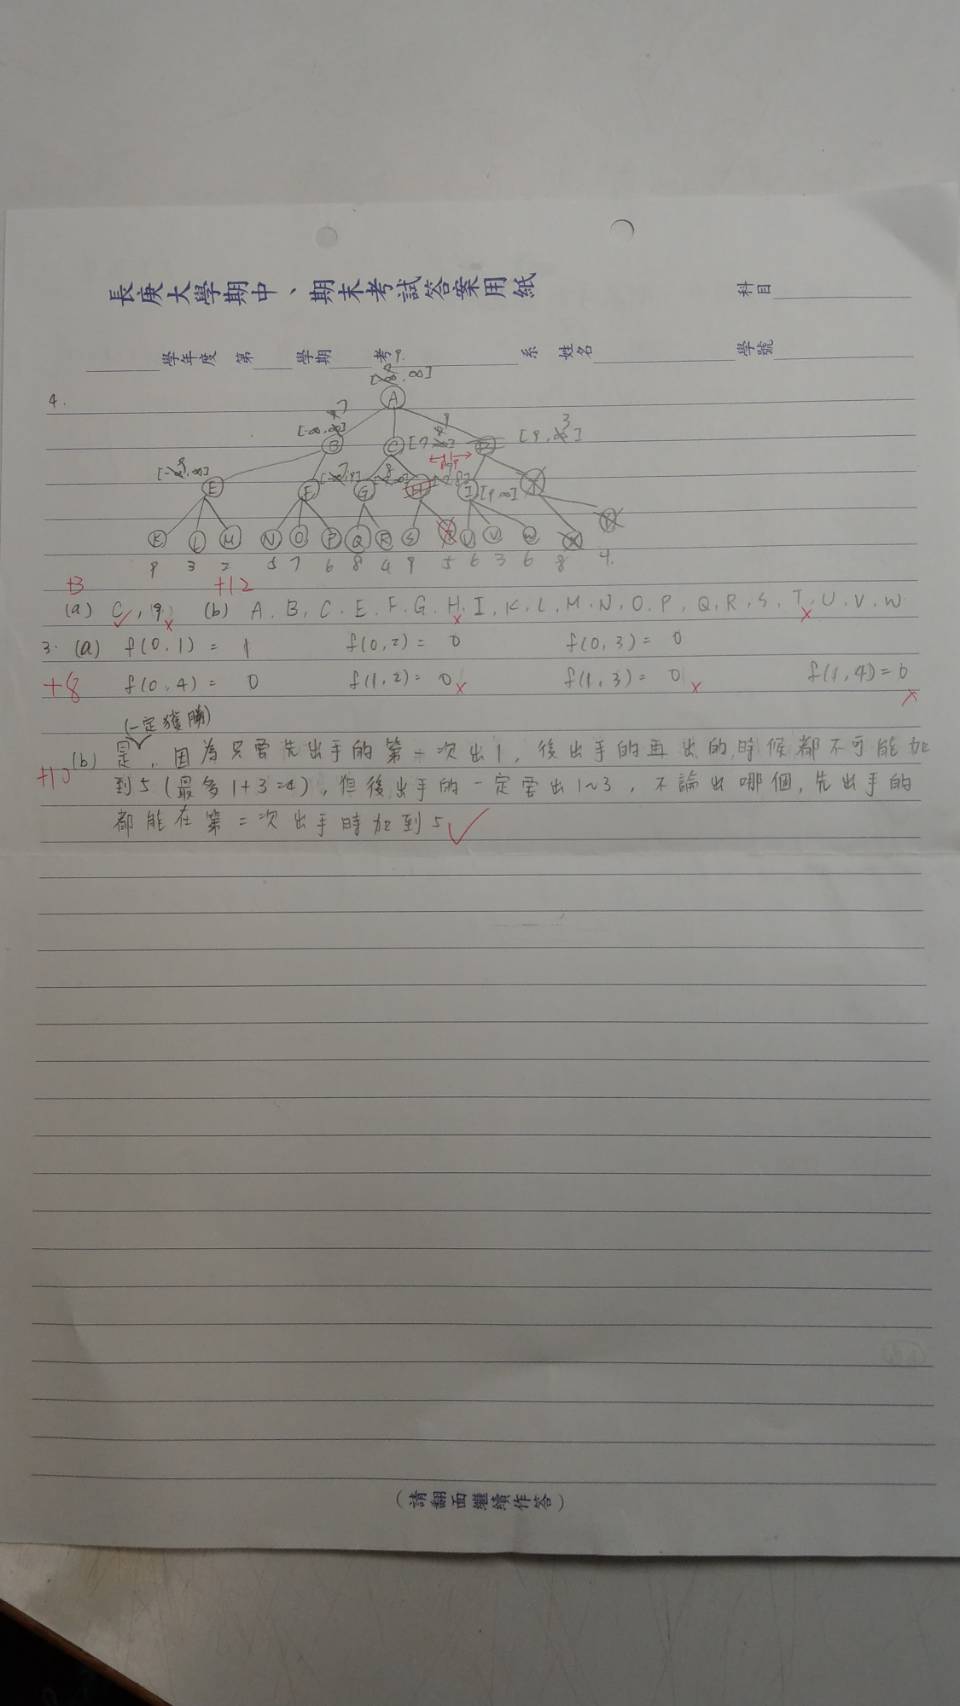 長庚大學期中、期末考試答案用紙
科目
學年度 第 學期 考 系 姓名 學號
4.
A
B C
E F G H I
K L M N O P Q R S U V W X
9 3 2 5 7 6 8 4 9 5 6 3 6 8 4
+3 +12
(a) C, 9 (b) A. B. C. E. F. G. H. I. K. L. M. N. O. P. Q. R. S. T. U. V. W
3. (a) f(0,1) = 1 f(0,2) = 0 f(0,3) = 0
+8 f(0,4) = 0 f(1,2) = 0 f(1,3) = 0 f(1,4) = 0
(一定獲勝)
+10 (b) 是, 因為只要先出手的第一次出1, 後出手的再出的時候都不可能加
到5 (最多1+3=4), 但後出手的一定要出1~3, 不論出哪個, 先出手的
都能在第二次出手時加到5
(請翻面繼續作答)